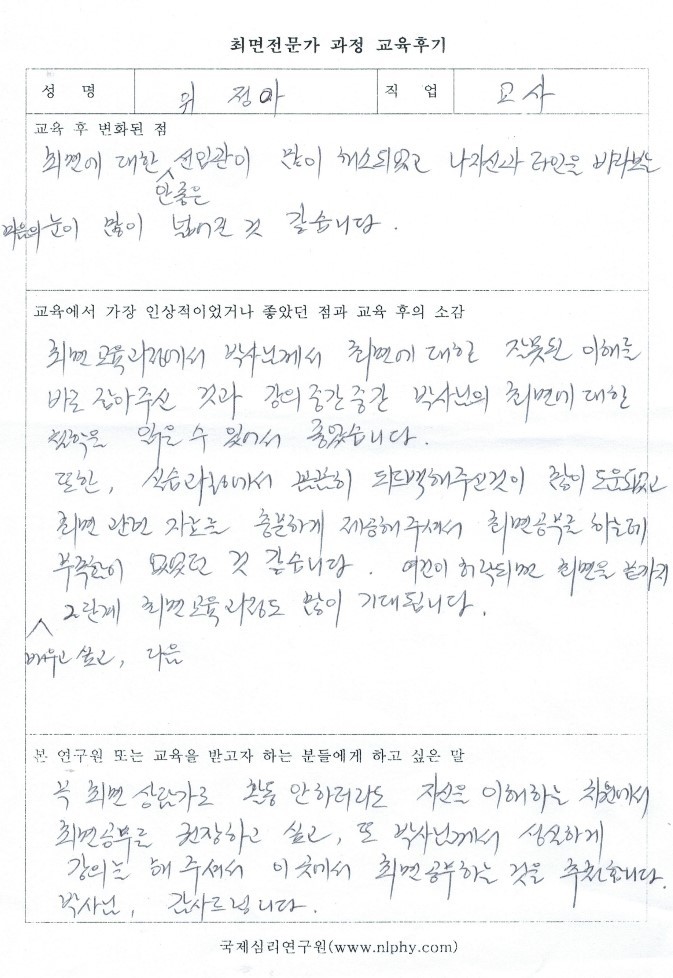 최면전문가 과정 교육후기
성 명 위 정아 직 업 교사
교육 후 변화된 점
최면에 대한 안좋은 선입관이 많이 해소되었고 나자신과 타인을 바라보는
마음의 눈이 많이 넓어진 것 같습니다.
교육에서 가장 인상적이었거나 좋았던 점과 교육 후의 소감
최면 교육과정에서 박사님께서 최면에 대한 잘못된 이해를
바로 잡아주신 것과 강의 중간중간 박사님의 최면에 대한
철학을 읽을 수 있어서 좋았습니다.
또한, 실습과정에서 꼼꼼히 피드백해주신것이 많이 도움되었고
최면 관련 자료를 충분하게 제공해 주셔서 최면공부를 하는데
부족함이 없었던 것 같습니다. 여건이 허락되면 최면을 끝까지
배우고 싶고, 다음 2단계 최면교육과정도 많이 기대됩니다.
본 연구원 또는 교육을 받고자 하는 분들에게 하고 싶은 말
꼭 최면 상담가로 활동 안하더라도 자신을 이해하는 차원에서
최면공부를 권장하고 싶고, 또 박사님께서 성실하게
강의를 해 주셔서 이 곳에서 최면공부하는 것을 추천합니다.
박사님, 감사드립니다.
국제심리연구원(www.nlphy.com)